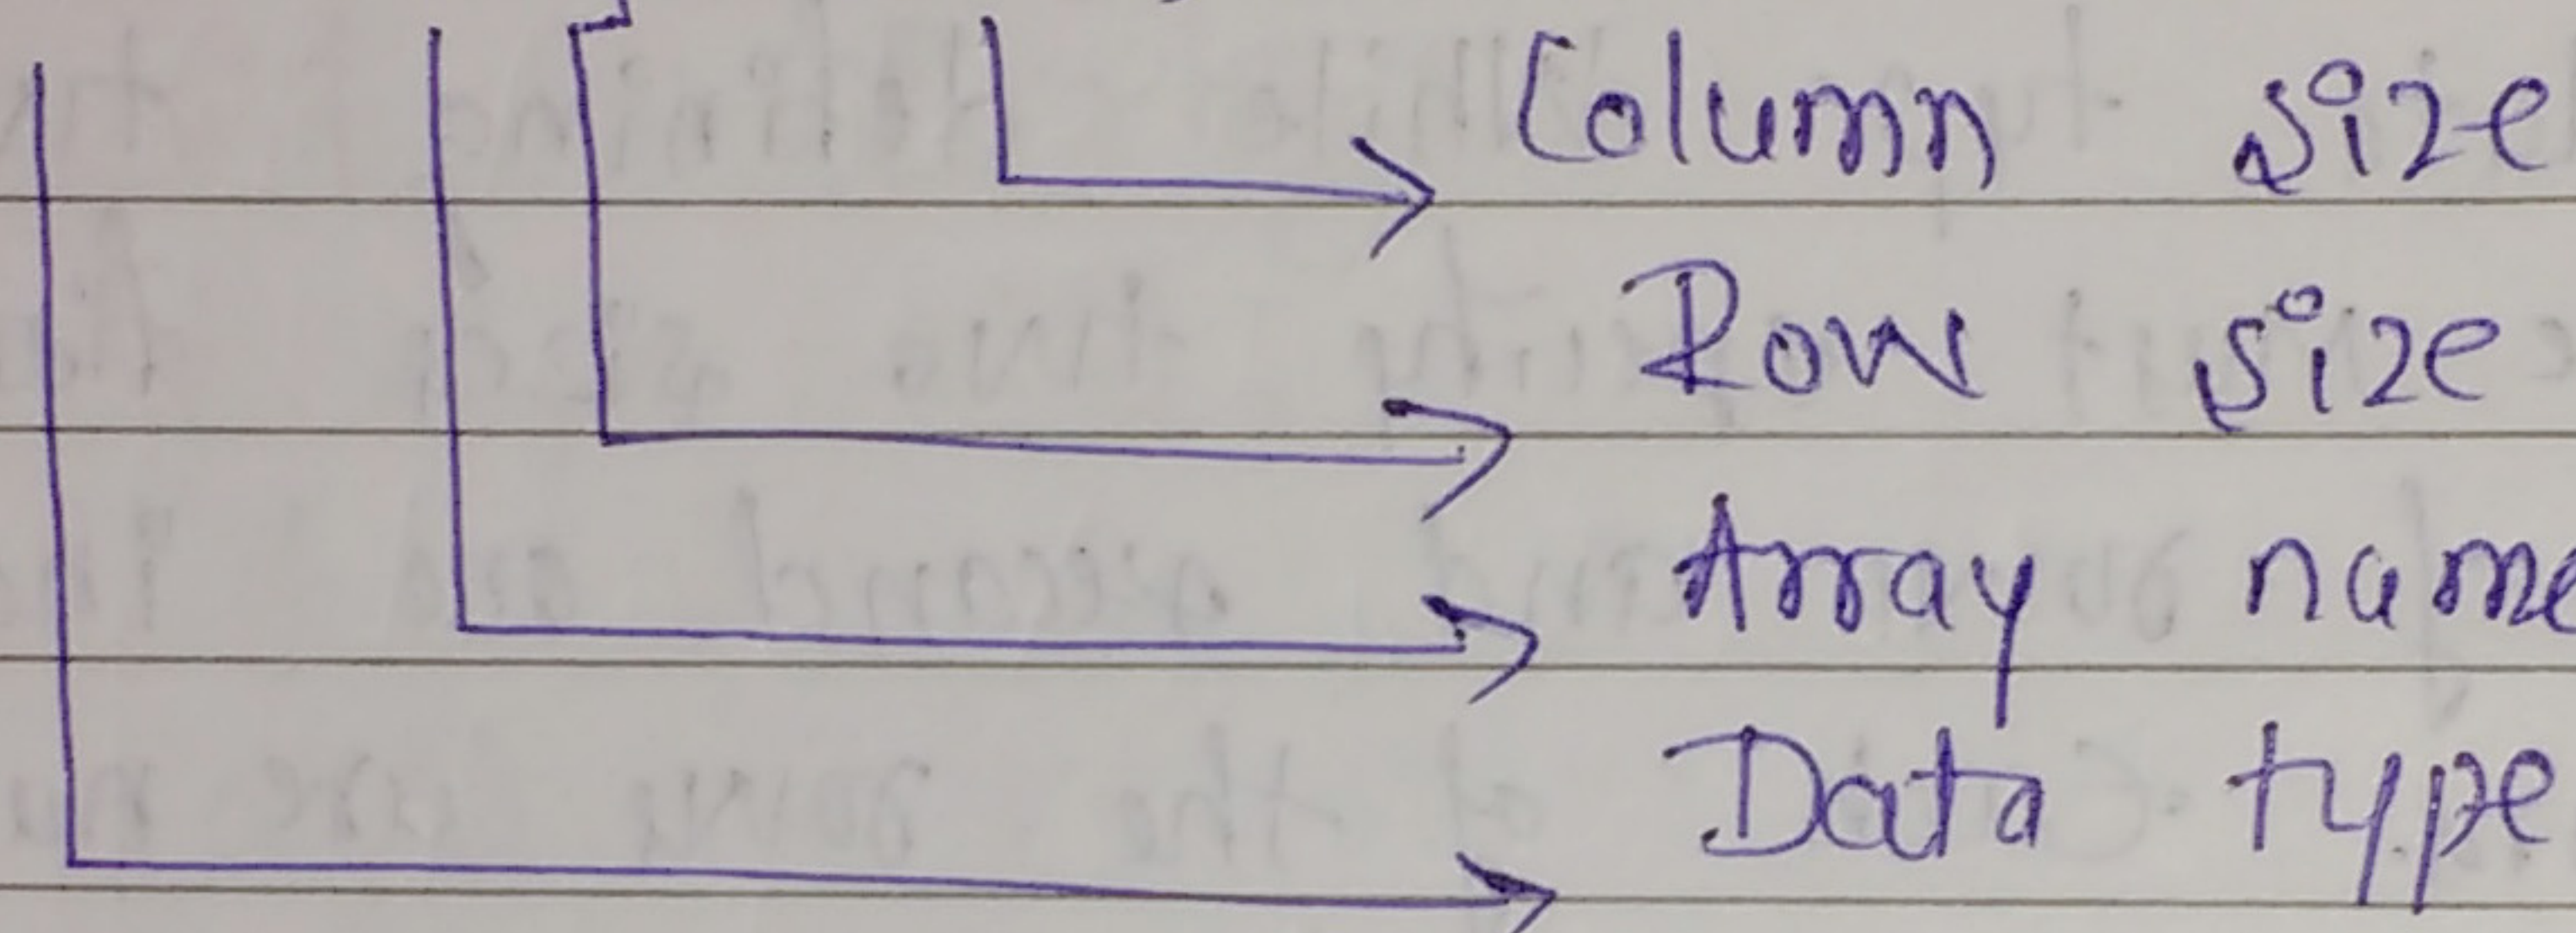 Column size
Row size
Array name
Data type